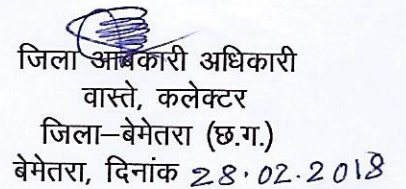 जिला आबकारी अधिकारी
वास्ते, कलेक्टर
जिला–बेमेतरा (छ.ग.)
बेमेतरा, दिनांक 28.02.2018